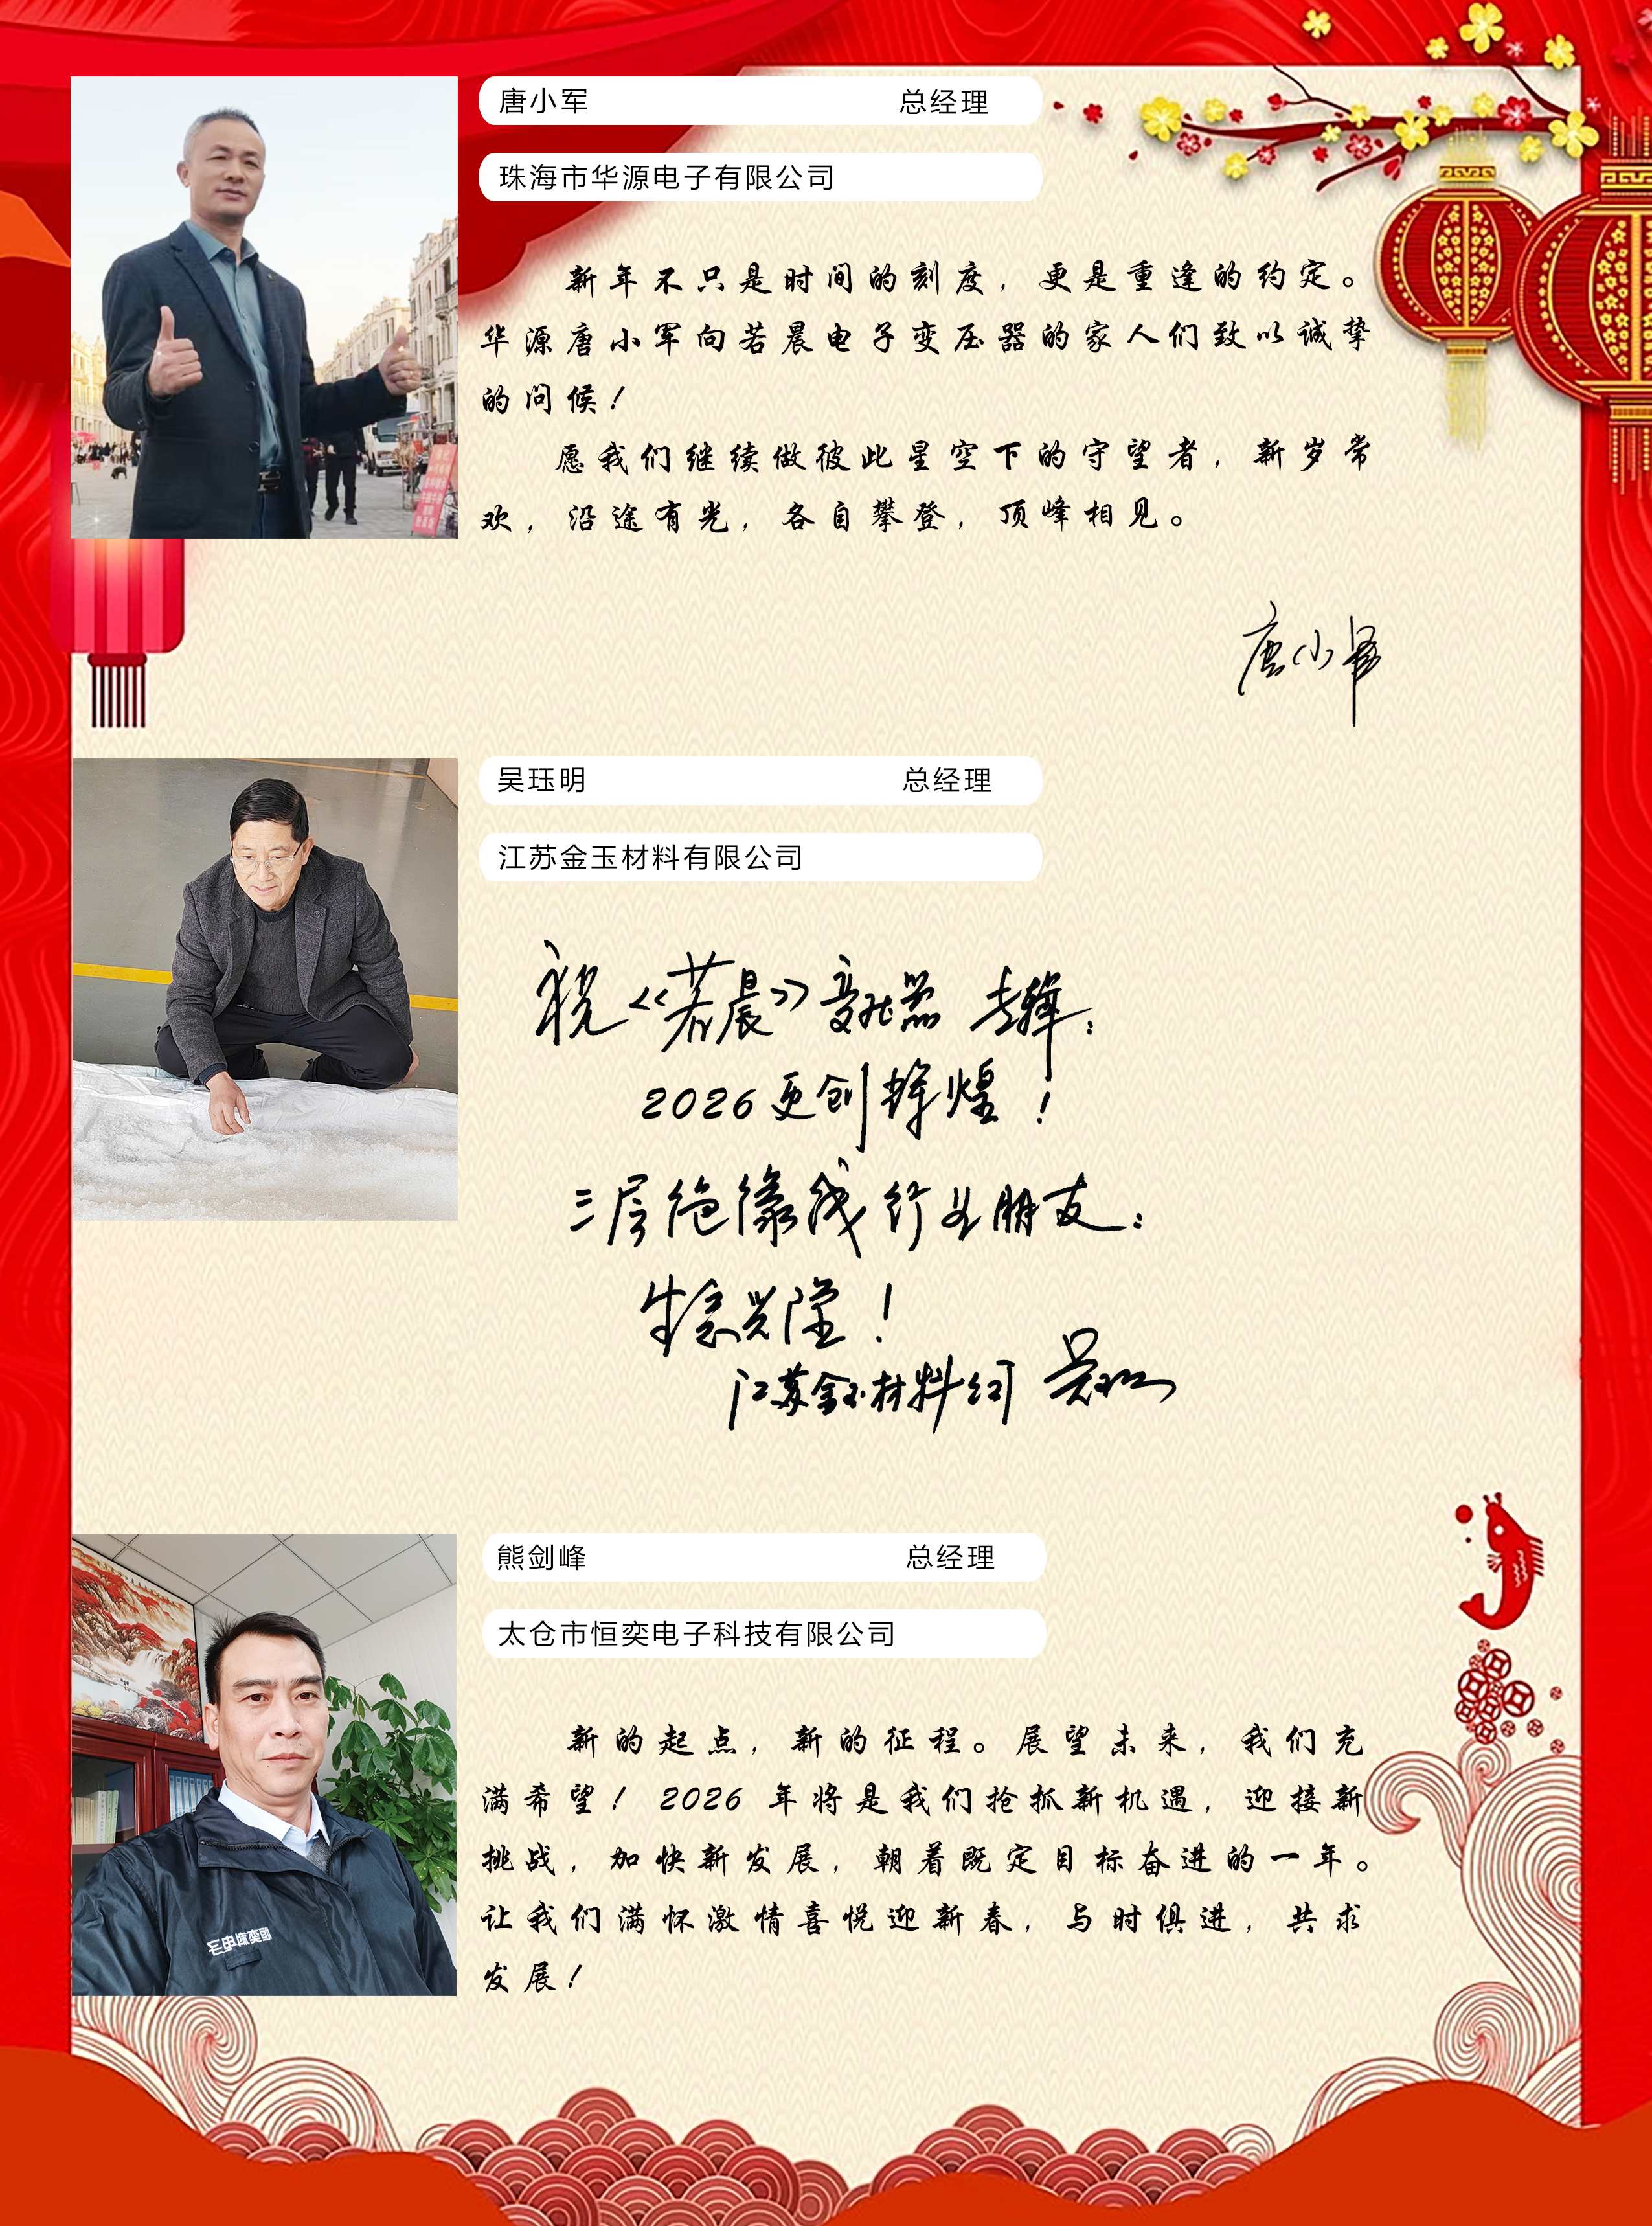 唐小军 总经理
珠海市华源电子有限公司
新年不只是时间的刻度，更是重逢的约定。
华源唐小军向若晨电子变压器的家人们致以诚挚
的问候！
愿我们继续做彼此星空下的守望者，新岁常
欢，沿途有光，各自攀登，顶峰相见。
唐小军
吴珏明 总经理
江苏金玉材料有限公司
祝《若晨》变压器专辑：
2026更创辉煌！
三层绝缘线行业朋友：
生意兴隆！
江苏金玉材料公司
熊剑峰 总经理
太仓市恒奕电子科技有限公司
新的起点，新的征程。展望未来，我们充
满希望！2026 年将是我们抢抓新机遇，迎接新
挑战，加快新发展，朝着既定目标奋进的一年。
让我们满怀激情喜悦迎新春，与时俱进，共求
发展！